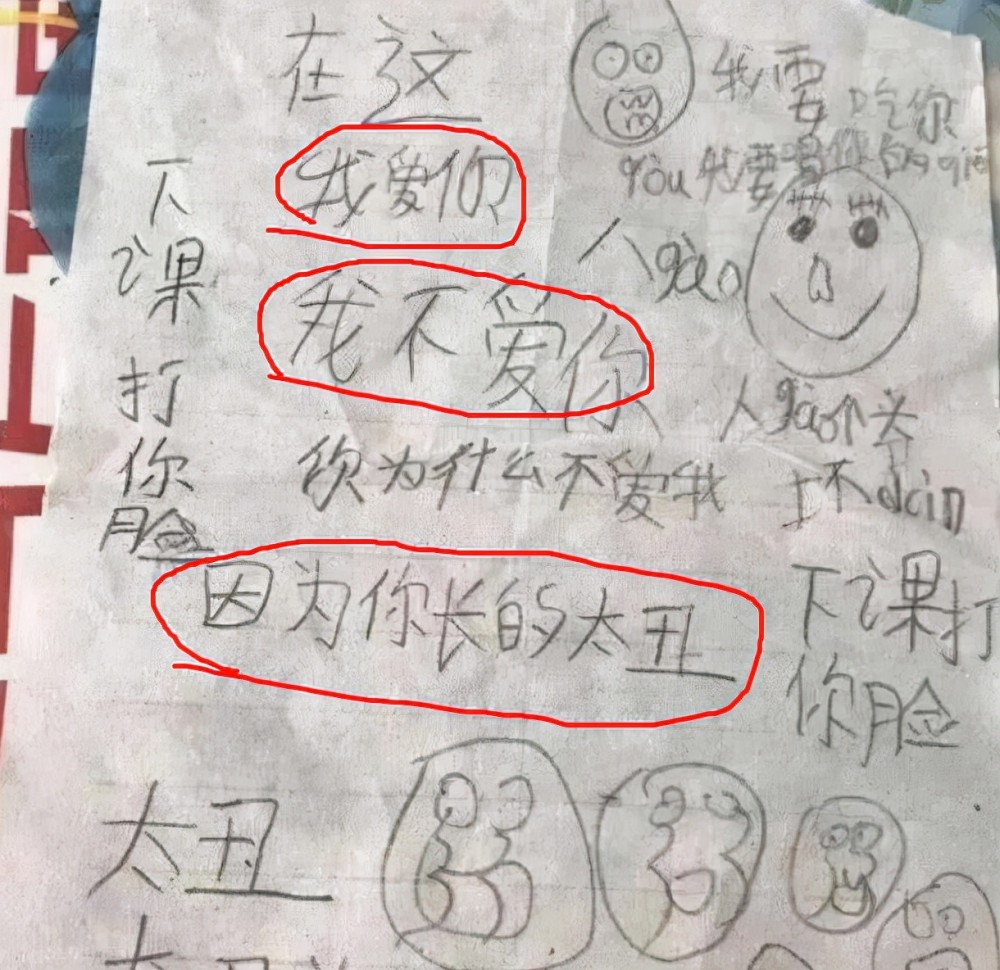 在这
我要吃你
我爱你
下课打你脸
you 我要喝你的qie
人gao
我不爱你
人gao个头
上不dain
你为什么不爱我
因为你长的太丑
下课打
你脸
太丑
太丑